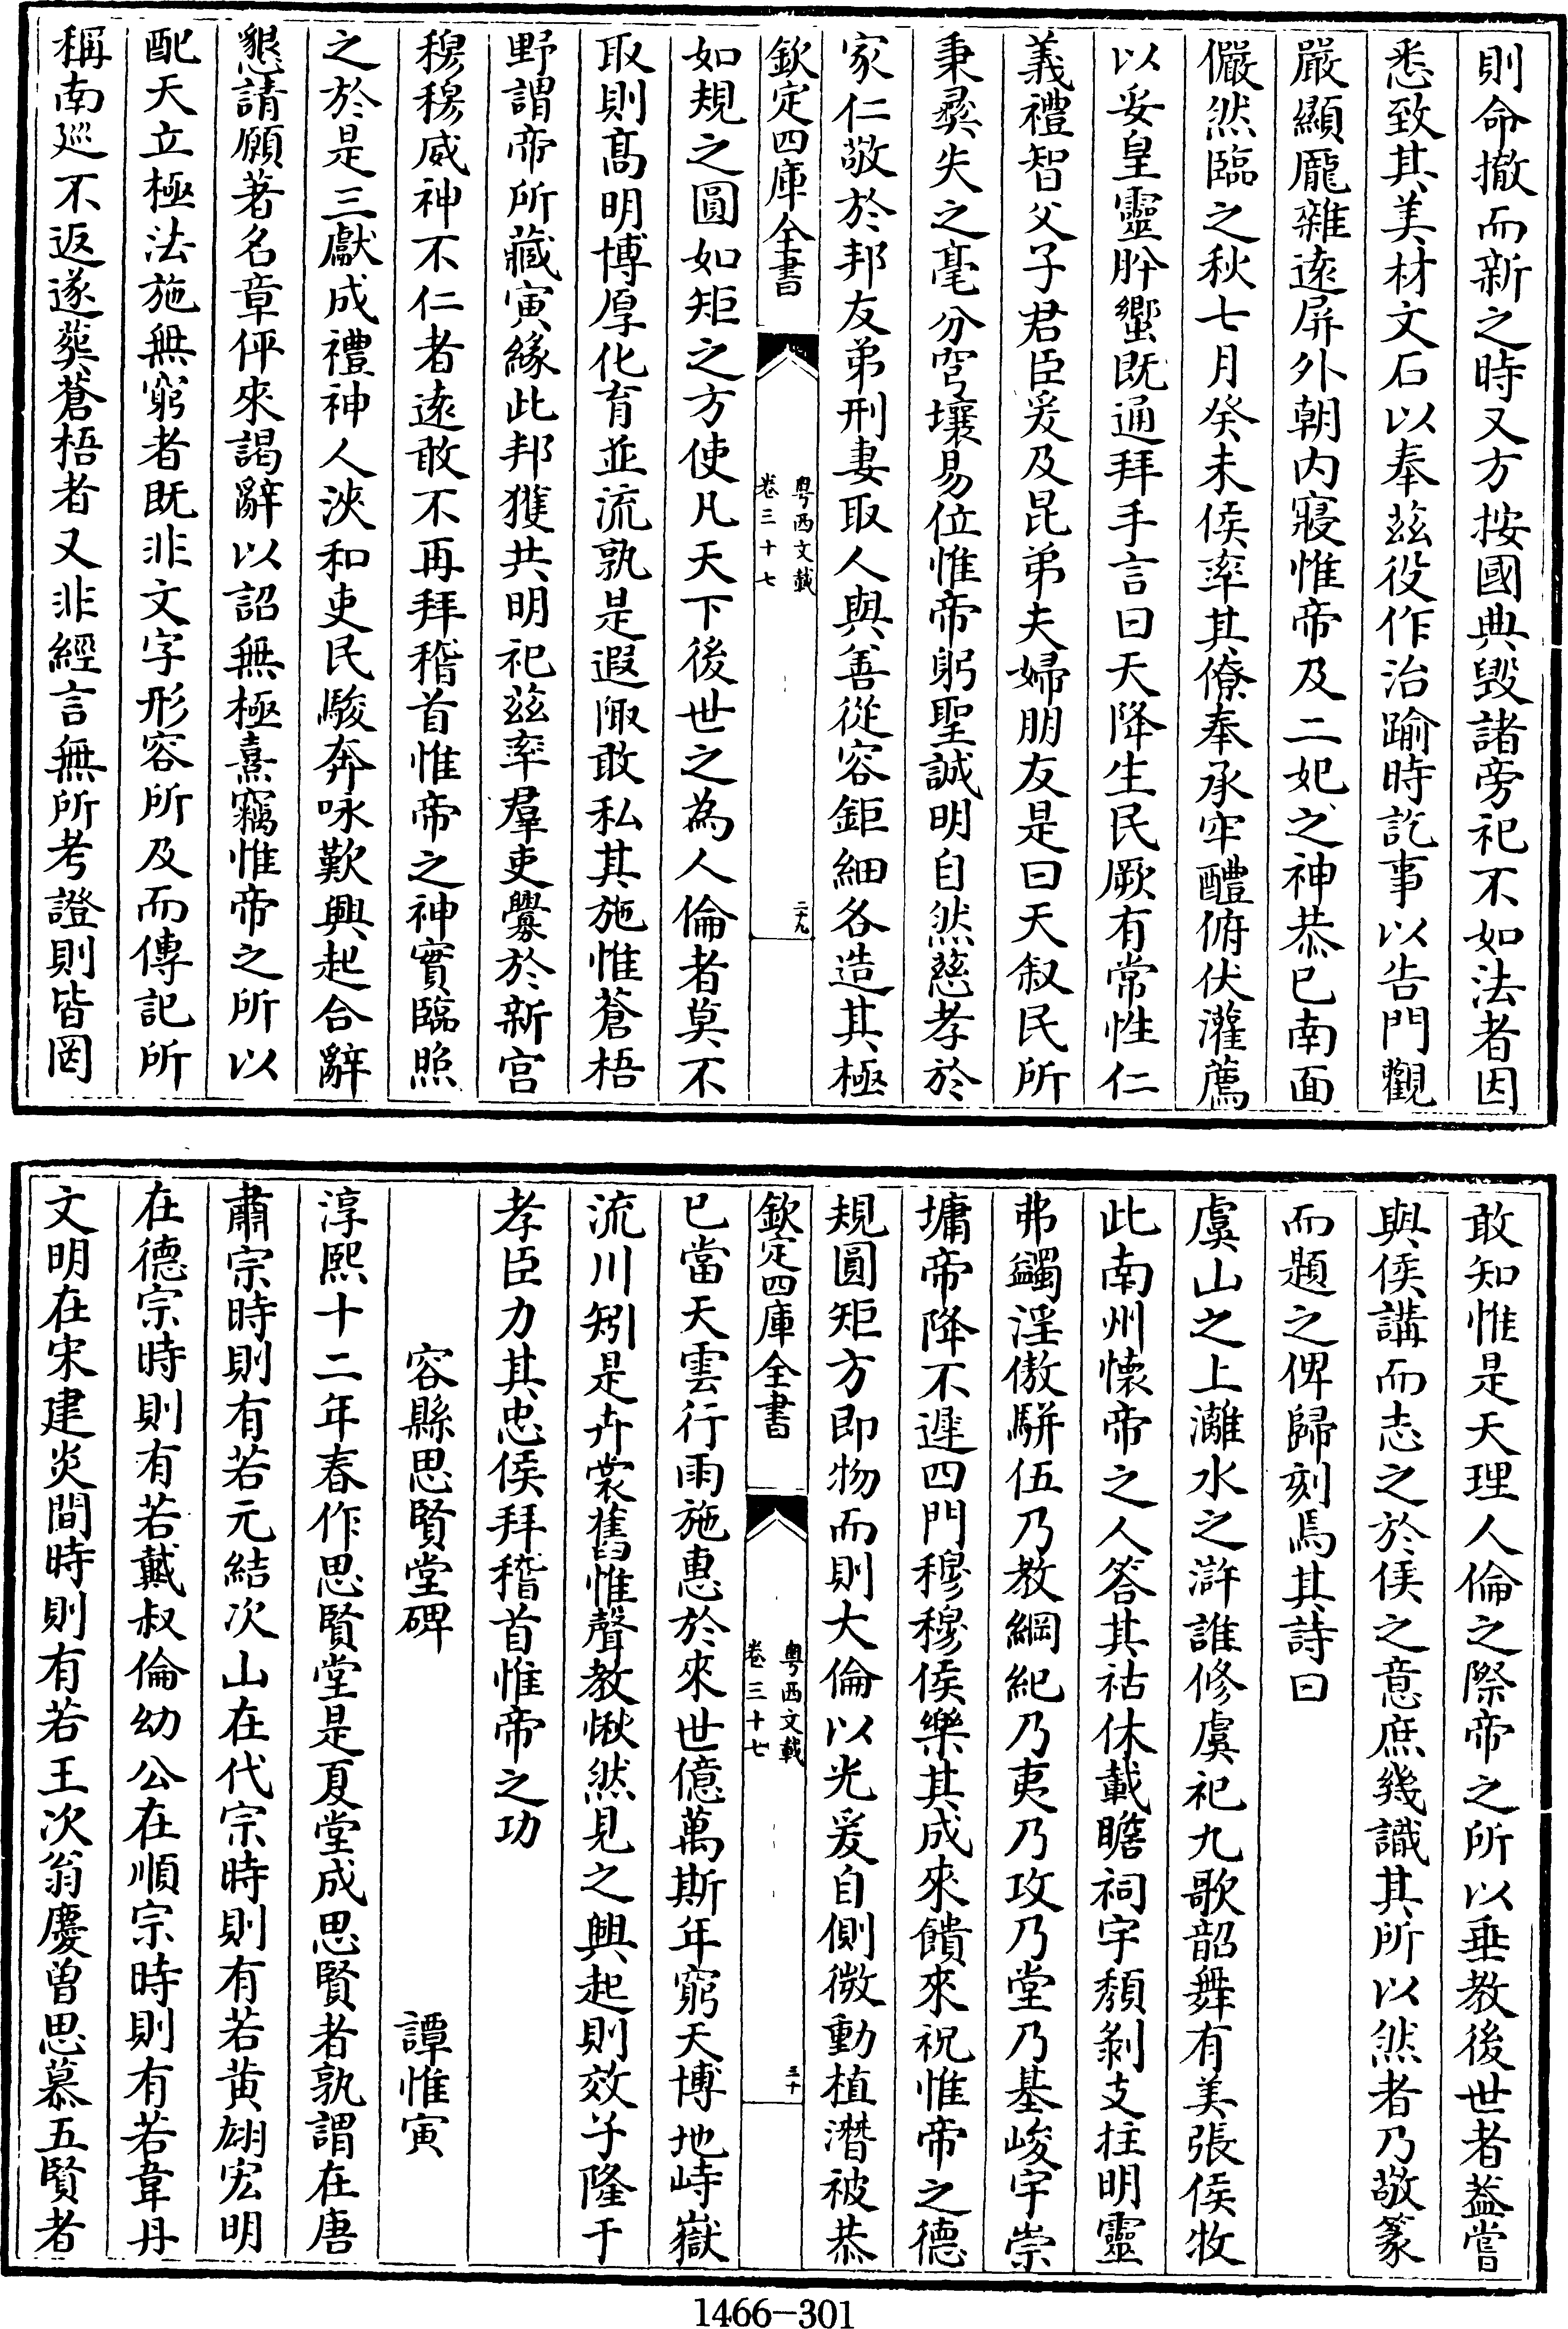 則命撤而新之時又方按國典毁諸旁祀不如法者因
悉致其美材文石以奉兹役作治踰時訖事以告門觀
嚴顯龎雜逺屏外朝内寢惟帝及二妃之神恭已南面
儼然臨之秋七月癸未侯率其僚奉承牢醴俯伏灌薦
以妥皇靈肸蠁既通拜手言曰天降生民厥有常性仁
義禮智父子君臣爰及昆弟夫婦朋友是曰天叙民所
秉彛失之毫分穹壤易位惟帝躬聖誠明自然慈孝於
家仁敬於邦友弟刑妻取人與善從容鉅細各造其極
欽定四庫全書
粤西文載
卷三十七
二十九
如規之圓如矩之方使凡天下後世之為人倫者莫不
取則髙明博厚化育並流孰是遐陬敢私其施惟蒼梧
野謂帝所藏寅緣此邦獲共明祀兹率羣吏釁於新宫
穆穆威神不仁者逺敢不再拜稽首惟帝之神實臨照
之於是三獻成禮神人浹和吏民駿奔咏歎興起合辭
懇請願著名章伻來謁辭以詔無極熹竊惟帝之所以
配天立極法施無窮者既非文字形容所及而傳記所
稱南巡不返遂葬蒼梧者又非經言無所考證則皆罔
敢知惟是天理人倫之際帝之所以垂教後世者葢嘗
與侯講而志之於侯之意庶幾識其所以然者乃敬篆
而題之俾歸刻焉其詩曰
虞山之上灕水之滸誰修虞祀九歌韶舞有美張侯牧
此南州懐帝之人答其祜休載瞻祠宇頽剝支拄明靈
弗蠲淫傲駢伍乃教綱紀乃夷乃攻乃堂乃基峻宇崇
墉帝降不遲四門穆穆侯樂其成來饋來祝惟帝之德
規圓矩方即物而則大倫以光爰自側微動植潛被恭
欽定四庫全書
粤西文載
卷三十七
三十
已當天雲行雨施惠於來世億萬斯年窮天博地峙嶽
流川矧是卉裳舊惟聲教愀然見之興起則效子隆于
孝臣力其忠侯拜稽首惟帝之功
容縣思賢堂碑
譚惟寅
淳熙十二年春作思賢堂是夏堂成思賢者孰謂在唐
肅宗時則有若元結次山在代宗時則有若黄翃宏明
在德宗時則有若戴叔倫幼公在順宗時則有若韋丹
文明在宋建炎間時則有若王次翁慶曾思慕五賢者
1466-301